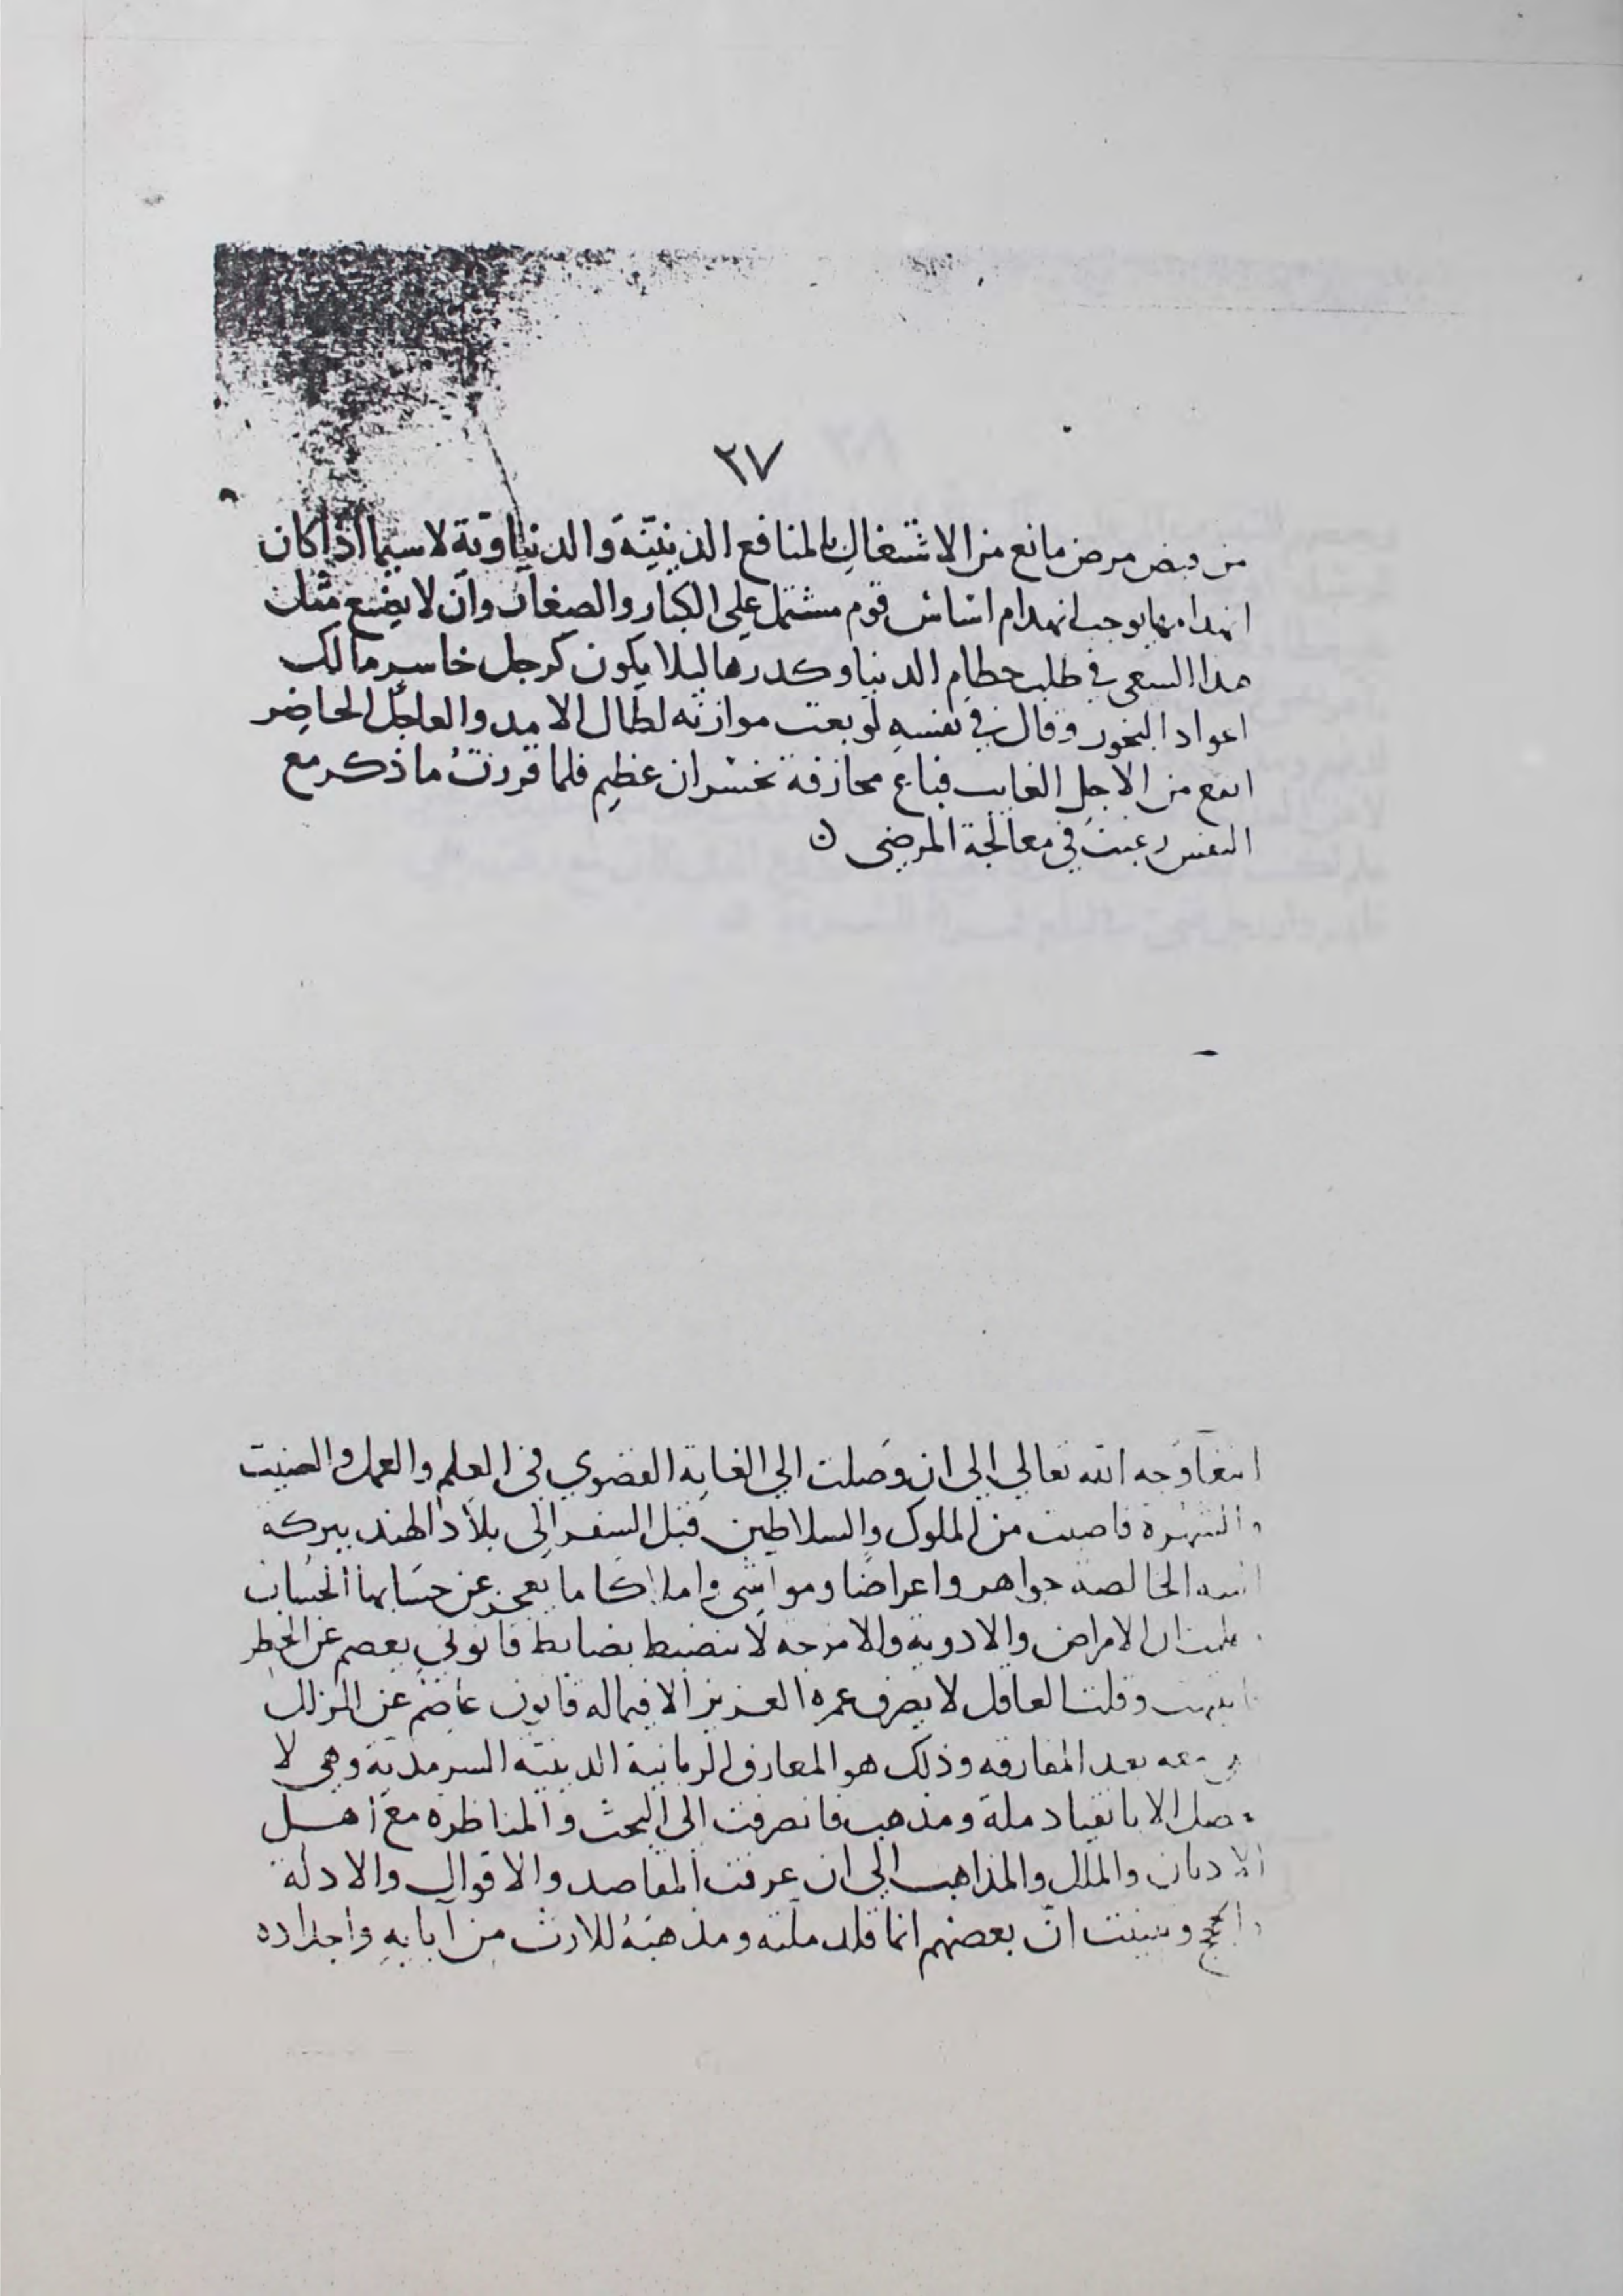 ٢٧
من قبض مرض مانع من الاشتغال بالمنافع الدينيّة والدنياويّة لاسيما اذا كان
انهدامها يوجب انهدام اساس قوم مشتمل على الكبار والصغار وان لا يضيع مثل
هذا السعى في طلب حطام الدنيا وكدرها ليلا يكون كرجل خاسر مالك
اعواد البخور وقال في نفسه لو بعت موازنه لطال الامد والعاجل الحاضر
انفع من الآجل الغايب فباع مجازفة بخسران عظيم فلما قررت ما ذكر مع
النفس رغبت في معالجة المرضى
ابتغا وجه الله تعالى الى ان وصلت الى الغاية القصوي في العلم والعمل والصيت
والشهرة فاصبت من الملوك والسلاطين قبل السفر الى بلاد الهند ببركة
النيه الخالصة جواهر واعراضا ومواشى واملاكا ما يعجز عن حسابها الحساب
علمت ان الامراض والادوية والامزجه لا تنضبط بضابط قانونى يعصم عن الخطر
وقلت العاقل لا يصرف عمره العزيز الا فيما له قانون عاصم عن الزلل
معه بعد المفارقه وذلك هو المعارف الربانية الدينيّه السرمديّة وهى لا
تحصل الا بانقياد ملة ومذهب فانصرفت الى البحث والمناظره مع اهل
الاديان والملل والمذاهب الى ان عرفت المقاصد والاقوال والادلة
والحجج وتبينت انّ بعضهم انما قلد ملته ومذهبه للارث من آبايه واجداده